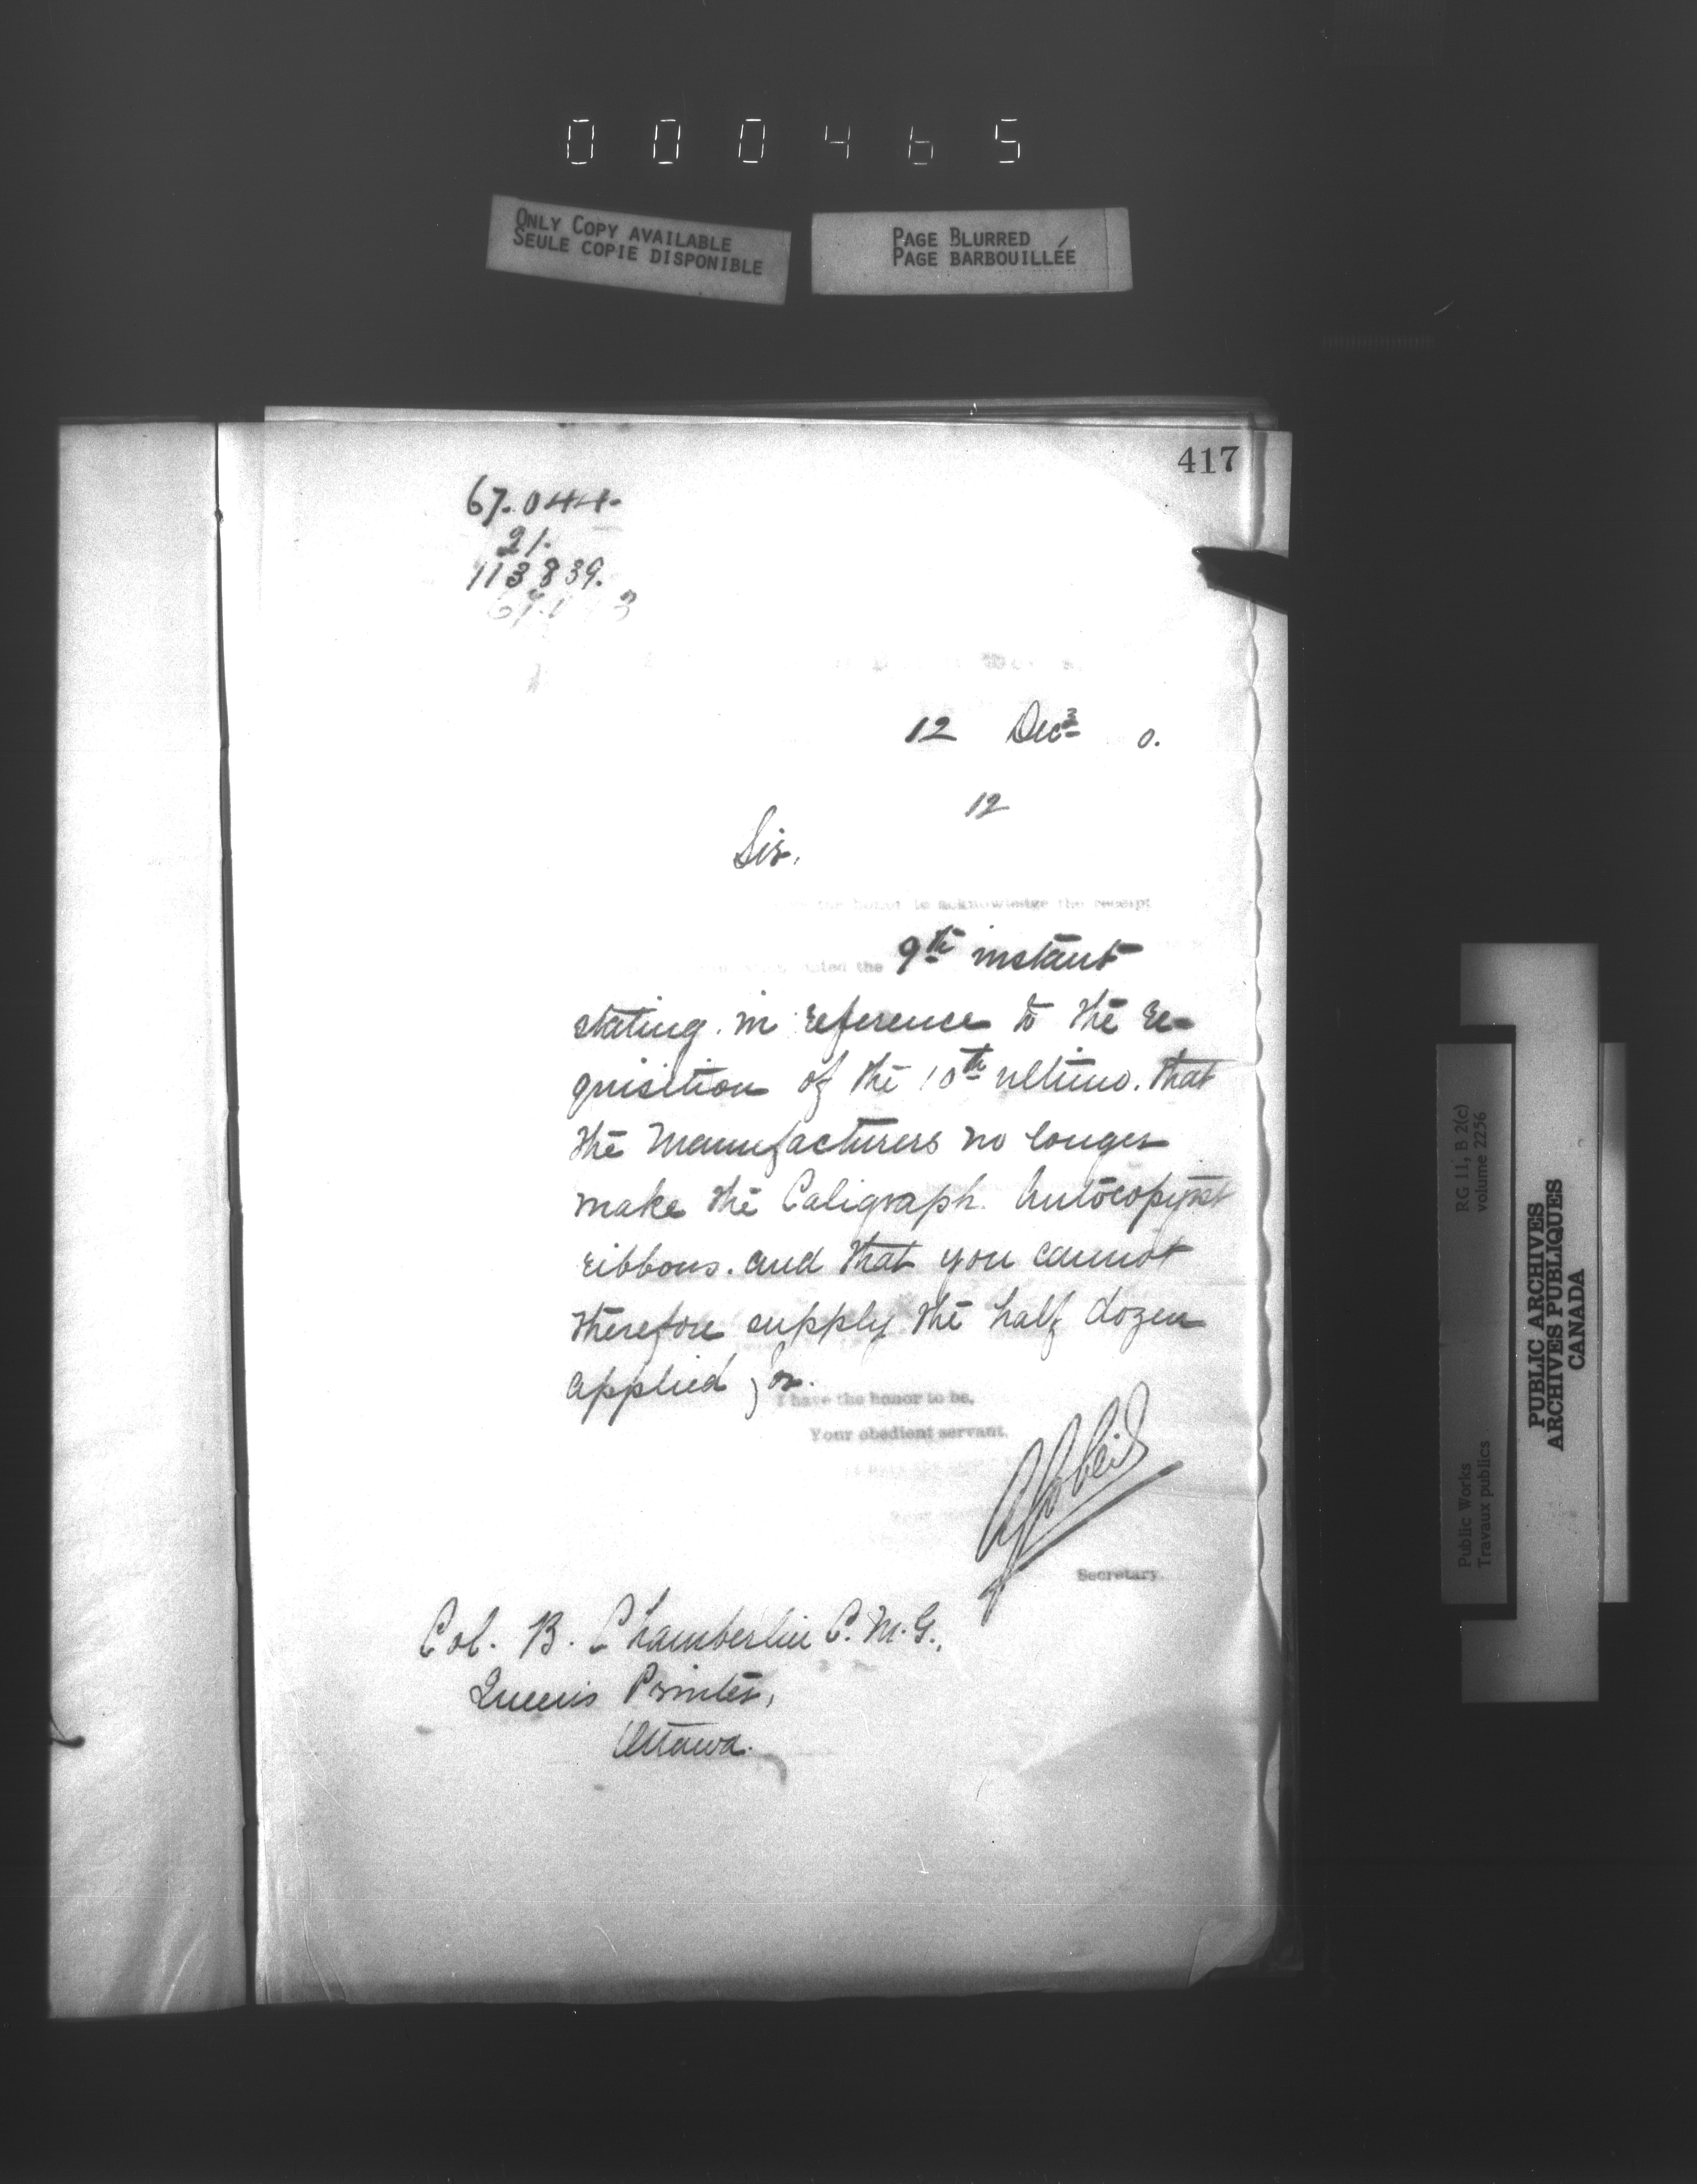 000465
ONLY COPY AVAILABLE
SEULE COPIE DISPONIBLE
PAGE BLURRED
PAGE BARBOUILLÉE
417
67.044.
21.
113839.
12 Dec 0.
12
Sir,
the honor to acknowledge the receipt
dated the 9th instant
stating. in reference to the re-
quisition of the 10th ultimo. that
the Manufacturers no longer
make the Caligraph. Autocopyist
ribbons. and that you cannot
therefore supply the half dozen
applied for.
I have the honor to be,
Your obedient servant,
Secretary.
Col. B. Chamberlin C.M.G.,
Queen's Printer,
Ottawa.
RG 11, B 2(c)
volume 2256
Public Works
Travaux publics
PUBLIC ARCHIVES
ARCHIVES PUBLIQUES
CANADA